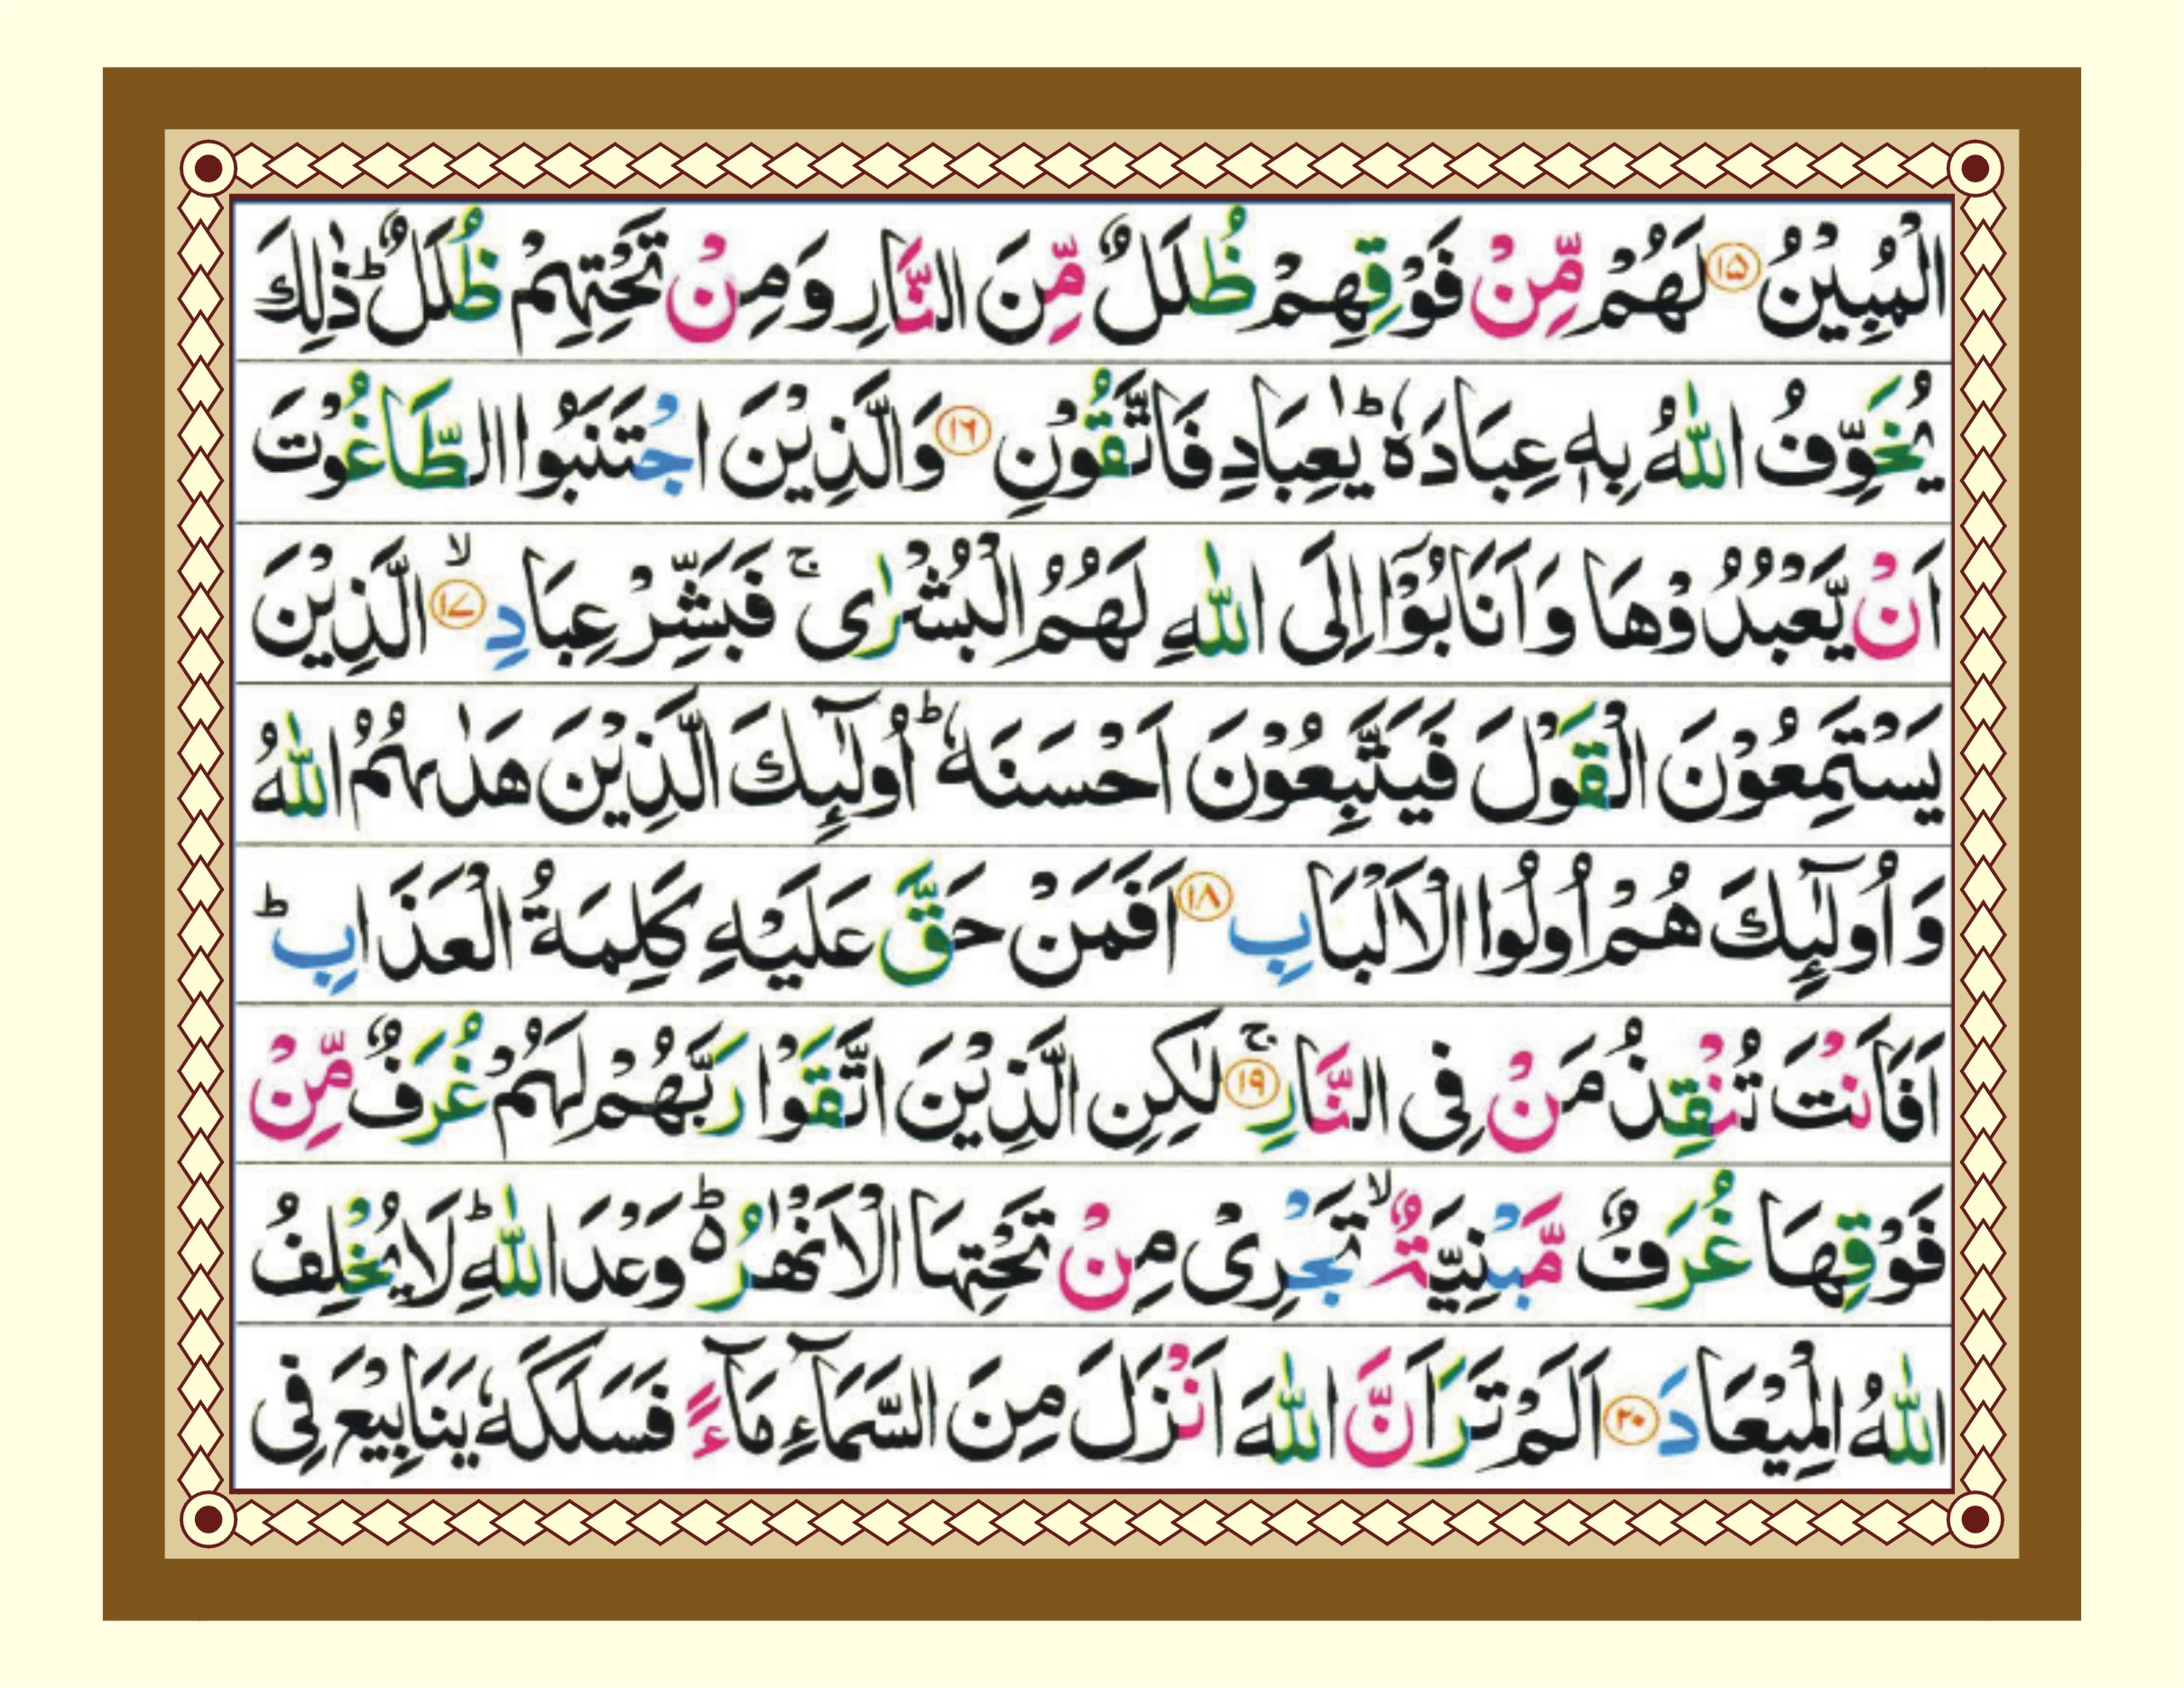 الْمُبِيْنُ ۝۱۵ لَهُمْ مِّنْ فَوْقِهِمْ ظُلَلٌ مِّنَ النَّارِ وَمِنْ تَحْتِهِمْ ظُلَلٌ ؕ ذٰلِكَ
يُخَوِّفُ اللّٰهُ بِهٖ عِبَادَهٗ ؕ يٰعِبَادِ فَاتَّقُوْنِ ۝۱۶ وَالَّذِيْنَ اجْتَنَبُوا الطَّاغُوْتَ
اَنْ يَّعْبُدُوْهَا وَاَنَابُوْۤا اِلَى اللّٰهِ لَهُمُ الْبُشْرٰى ۚ فَبَشِّرْ عِبَادِ ۙ۝۱۷ الَّذِيْنَ
يَسْتَمِعُوْنَ الْقَوْلَ فَيَتَّبِعُوْنَ اَحْسَنَهٗ ؕ اُولٰٓئِكَ الَّذِيْنَ هَدٰىهُمُ اللّٰهُ
وَاُولٰٓئِكَ هُمْ اُولُوا الْاَلْبَابِ ۝۱۸ اَفَمَنْ حَقَّ عَلَيْهِ كَلِمَةُ الْعَذَابِ ؕ
اَفَاَنْتَ تُنْقِذُ مَنْ فِى النَّارِ ۚ۝۱۹ لٰكِنِ الَّذِيْنَ اتَّقَوْا رَبَّهُمْ لَهُمْ غُرَفٌ مِّنْ
فَوْقِهَا غُرَفٌ مَّبْنِيَّةٌ ۙ تَجْرِىْ مِنْ تَحْتِهَا الْاَنْهٰرُ ؕ۬ وَعْدَ اللّٰهِ ؕ لَا يُخْلِفُ
اللّٰهُ الْمِيْعَادَ ۝۲۰ اَلَمْ تَرَ اَنَّ اللّٰهَ اَنْزَلَ مِنَ السَّمَآءِ مَآءً فَسَلَكَهٗ يَنَابِيْعَ فِى